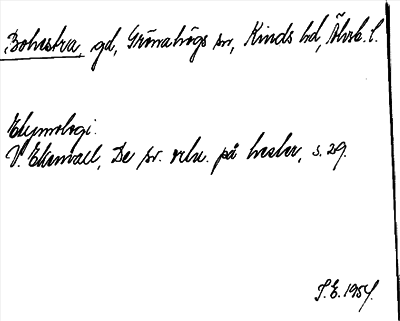 Bohestra, gd, Grönahögs sn, Kinds hd, Älvsb. l.
Etymologi.
V. Ekenvall, De sv. ortn. på hester, s. 29.
I.E. 1954.